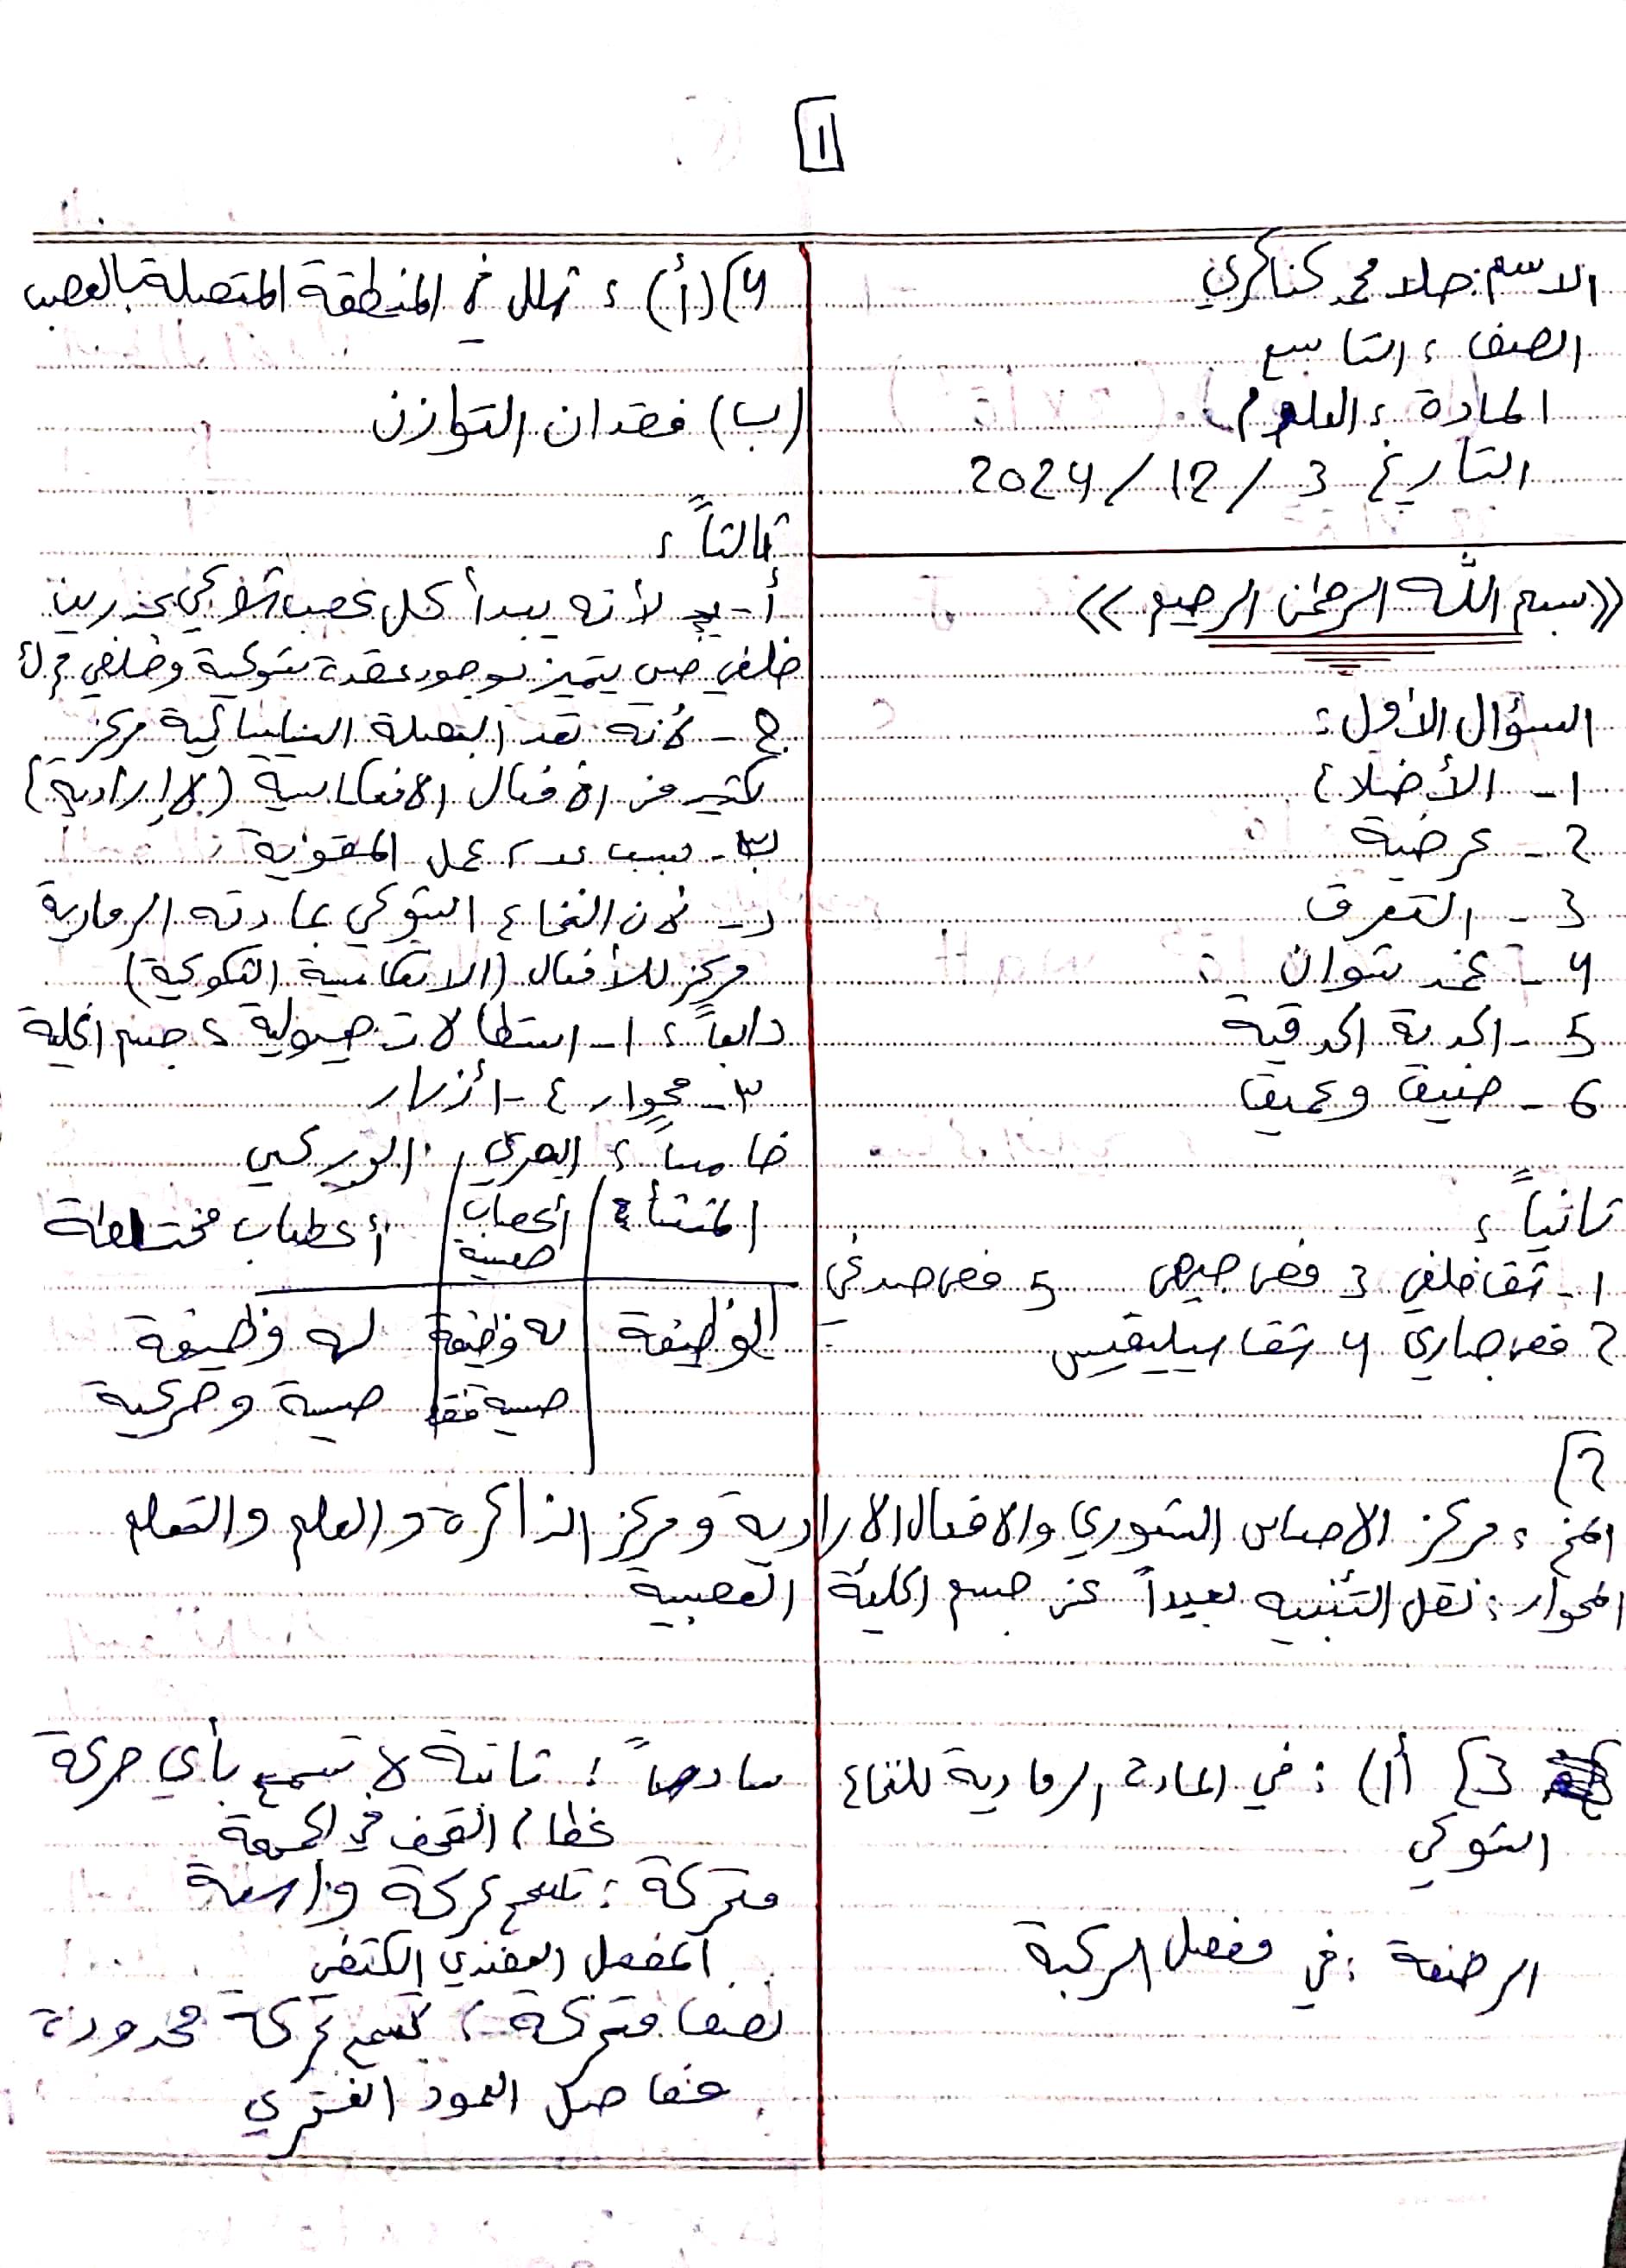 ١
الاسم: حلا محمد كناكري
الصف: التاسع
المادة: العلوم
التاريخ 3 / 12 / 2024
((بسم الله الرحمن الرحيم))
السؤال الأول:
1 - الأضلاع
2 - عرضية
3 - التعرق
4 - عند شوان
5 - الحدبة الحدقية
6 - ضيق وعميق
ثانياً:
1 - شق خلفي 3 فص جبهي 5 فص صدغي
2 فص جداري 4 شق سيلفيس
2]
المخ: مركز الاحساس الشعوري والافعال الارادية ومركز الذاكرة والعلم والتعلم
المحوار: نقل التنبيه بعيداً عن جسم الخلية العصبية
3] أ): في المادة الرمادية للنخاع
الشوكي
الرضفة: في مفصل الركبة
4] (أ): شلل في المنطقة المتصلة بالعصب
(ب) فقدان التوازن
ثالثاً:
أ - لأنه يبدأ كل عصب شوكي بجذرين
خلفي حسي يتميز بوجود عقدة شوكية
ج - لأنه تعد البصلة السيسائية مركز
كثير من الافعال الانعكاسية (لاإرادية)
ب - بسبب عدم عمل المقوية
د - لان النخاع الشوكي بمادته الرمادية
مركز للأفعال (الانعكاسية الشوكية)
رابعاً: ١ - استطالات هيولية ٢ جسم الخلية
٣ - محوار ٤ - أزرار
خامساً: البصري الوركي
المنشأ أعصاب حسية أعصاب مختلطة
الوظيفة له وظيفة له وظيفة
حسية فقط حسية وحركية
سادساً: ثابتة لا تسمح بأي حركة
عظام القحف في الجمجمة
متحركة: تسمح بحركة واسعة
المفصل العضدي الكتفي
نصف متحركة: تسمح بحركة محدودة
مفاصل العمود الفقري